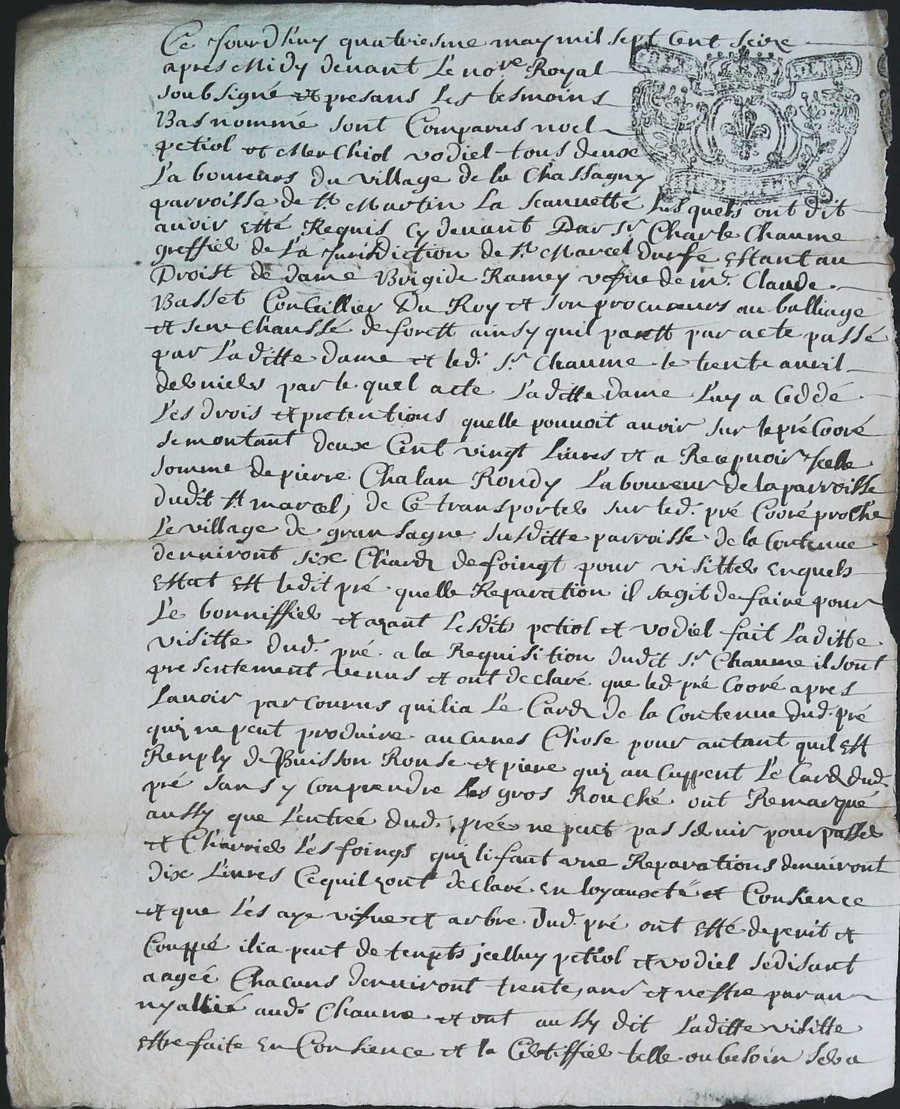 Ce Jourdhuy quatriesme may mil sept cent seize
apres Midy devant Le nore Royal
soubsigné et presans Les tesmoins
Bas nommé sont Comparus noel
petiol et Merchiol vodiel tous deux
Laboureurs du village de la Chassagny
parroisse de st Martin La scauvetté Lesquels ont dit
avoir esté Requis Cy devant Par sr Charle Chaume
greffiel de La Jurisdiction de st Marcel durfe estant au
Droist de dame Brigide Ramey vefve de mr Claude
Basset Conseillier Du Roy et son procureurs au balliage
et senechaussé de forest ainsy quil parest par acte passé
par Laditte dame et led. sr Chaume le trente avril
derniels par lequel acte Laditte dame Luy a ceddé
Les drois et pretentions quelle pouvoit avoir sur le pré Cooré
se montant deux Cent vingt Livres et a Recepvoir Icelle
somme de pierre Chalan Rondy Laboureur de la parroisse
dudit st marcel, de Ce transporter sur led. pré Cooré proche
Le village de gransagne susditte parroisse de la Contenue
denviront six Chard de foingt pour visitter en quels
Estat Est ledit pré quelle Reparation il sagit de faire pour
Le bonniffiel et ayant Lesdits petiol et vodiel fait Laditte
visitte dud. pré a la Requisition dudit sr Chaume il sont
presentement venus et ont declaré que led. pré Cooré apres
Lavoir parcourus quilia Le Card de la Contenue dud. pré
qui ne peut produire aucunes Chose pour autant quil Est
Remply de Buisson Ronse et piere qui aucuppent Le Card dud.
pré sans y comprendre Les gros Rouché ont Remarqué
aussy que Lentrée dud. prée ne peut pas servir pour passer
et Charrier Les foings qui li faut une Reparations denviront
dix Livres Ce quil ont declaré En loyauseté et Consience
et que Les aye vifve et arbre dud. pré ont Esté deperit et
Couppé ilia peut de tempts jcelluy petiol et vodiel se disant
aageé Chacuns denviront trente ans et nestre paran
ny allié aud. Chaume et ont aussy dit Laditte visitte
Estre faite En Consience et la Certiffiel telle ou besoin sera